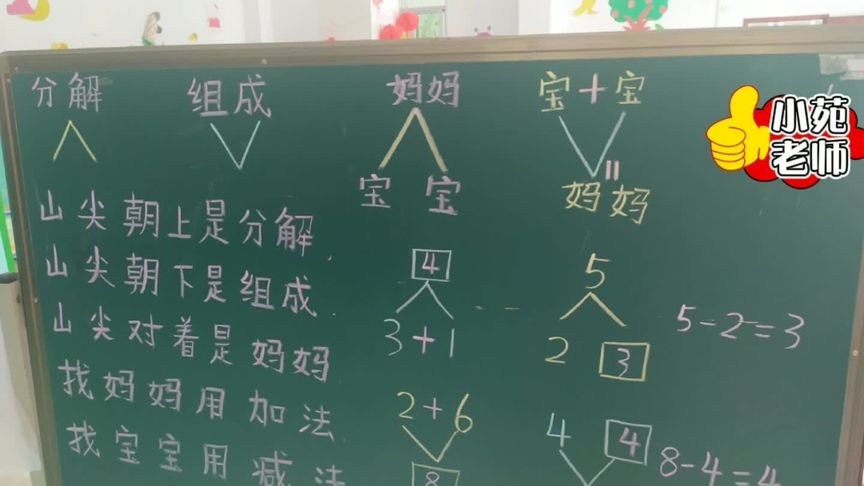 分解 组成 妈妈 宝+宝
宝 宝 = 妈妈
小苑
老师
山尖朝上是分解
山尖朝下是组成
山尖对着是妈妈
找妈妈用加法
找宝宝用减法
4
3+1
5
2 3
5-2=3
2+6
8
4 4
8-4=4